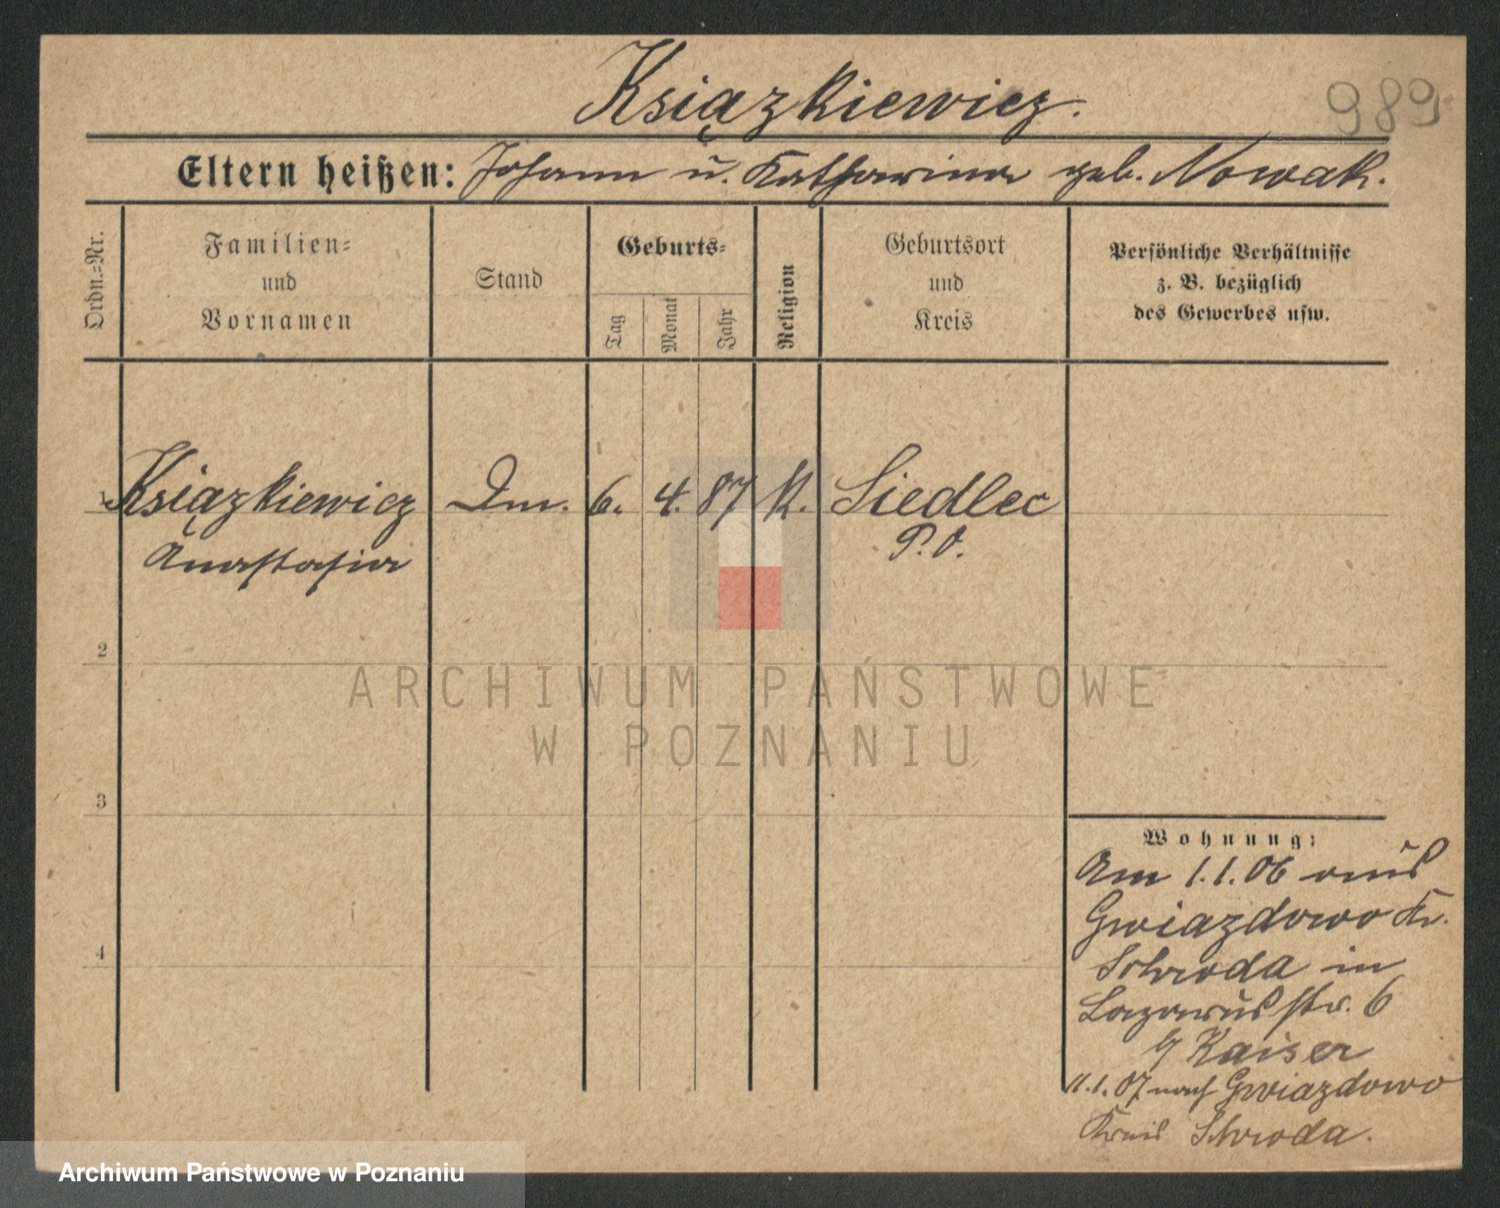 Książkiewicz.
989
Eltern heißen: Johann u. Katharina geb. Nowak.
Ordn.=Nr.
Familien=
und
Vornamen
Stand
Geburts=
Tag
Monat
Jahr
Religion
Geburtsort
und
Kreis
Persönliche Verhältnisse
z. B. bezüglich
des Gewerbes usw.
1 Książkiewicz Dm. 6. 4. 87 K. Siedlec
Anastasia P. O.
2
ARCHIWUM PAŃSTWOWE
W POZNANIU
3
4
Wohnung:
Am 1.1.06 aus
Gwiazdowo Kr.
Schroda in
Lazarusstr. 6
b/ Kaiser
11.1.07 nach Gwiazdowo
Kreis Schroda.
Archiwum Państwowe w Poznaniu